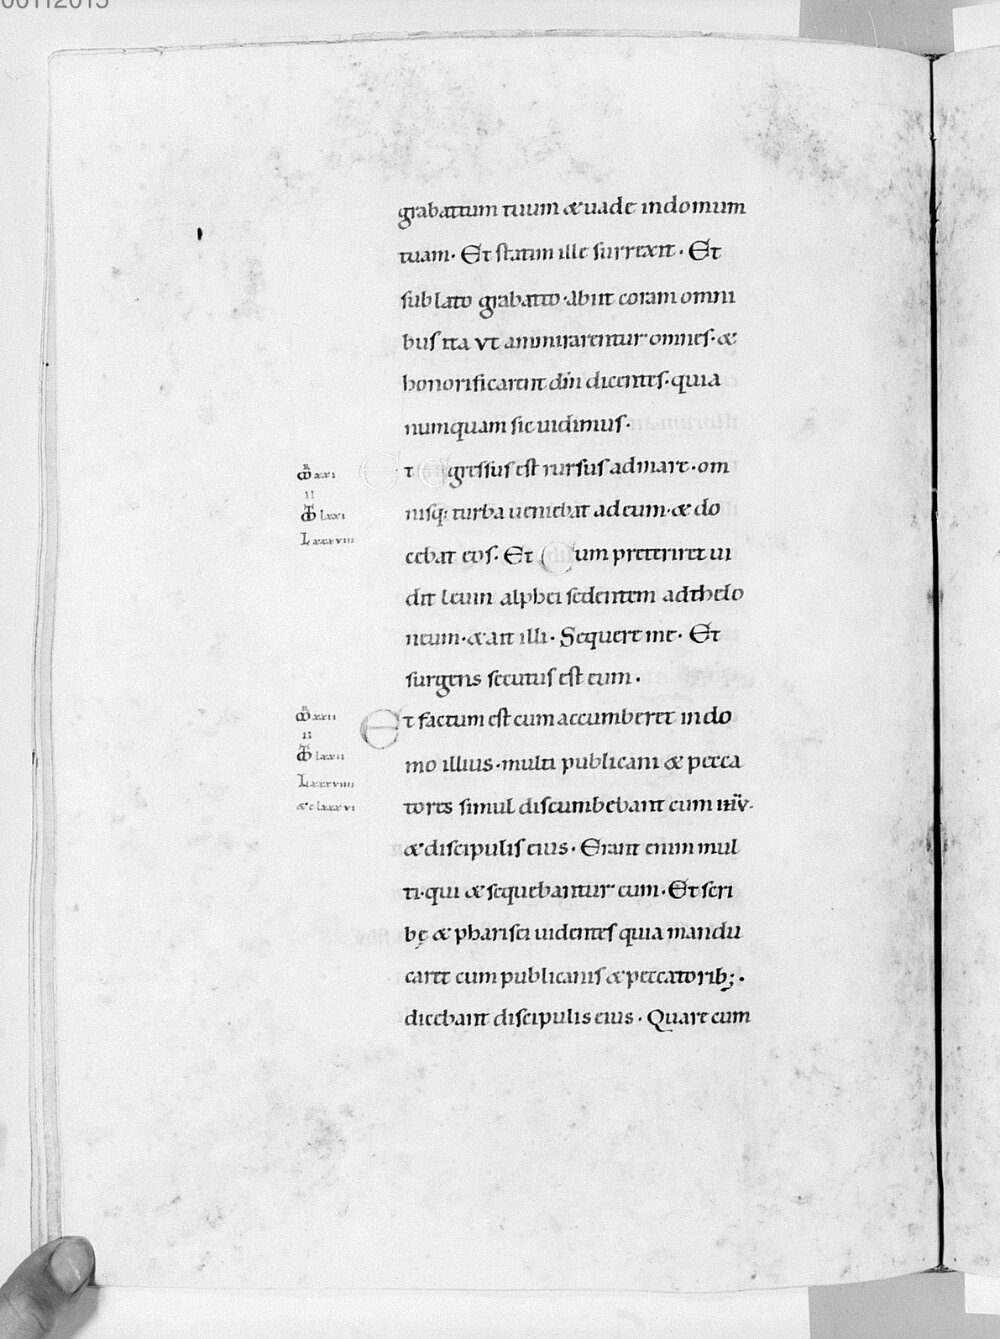 00112015
grabattum tuum &uade indomum
tuam. Et statim ille surrexit. Et
sublato grabatto. abiit coram omni
bus ita vt ammirarentur omnes. &
honorificarent dm̄ dicentes. quia
numquam sic uidimus.
Et egressus est rursus admare. om
nisq; turba ueniebat adeum. & do
cebat eos. Et Cum preteriret ui
dit leuin alphei sedentem adthelo
neum. &ait illi. Sequere me. Et
surgens secutus est eum.
Et factum est cum accumberet indo
mo illius. multi publicani & pecca
tores simul discumbebant cum
& discipulis eius. Erant enim mul
ti. qui & sequebantur eum. Et scri
bę & pharisei uidentes quia mandu
caret cum publicanis & peccatorib;.
dicebant discipulis eius. Quare cum
xxi
II
Lxxi
Lxxxviii
xxii
II
Lxxii
Lxxxviiii